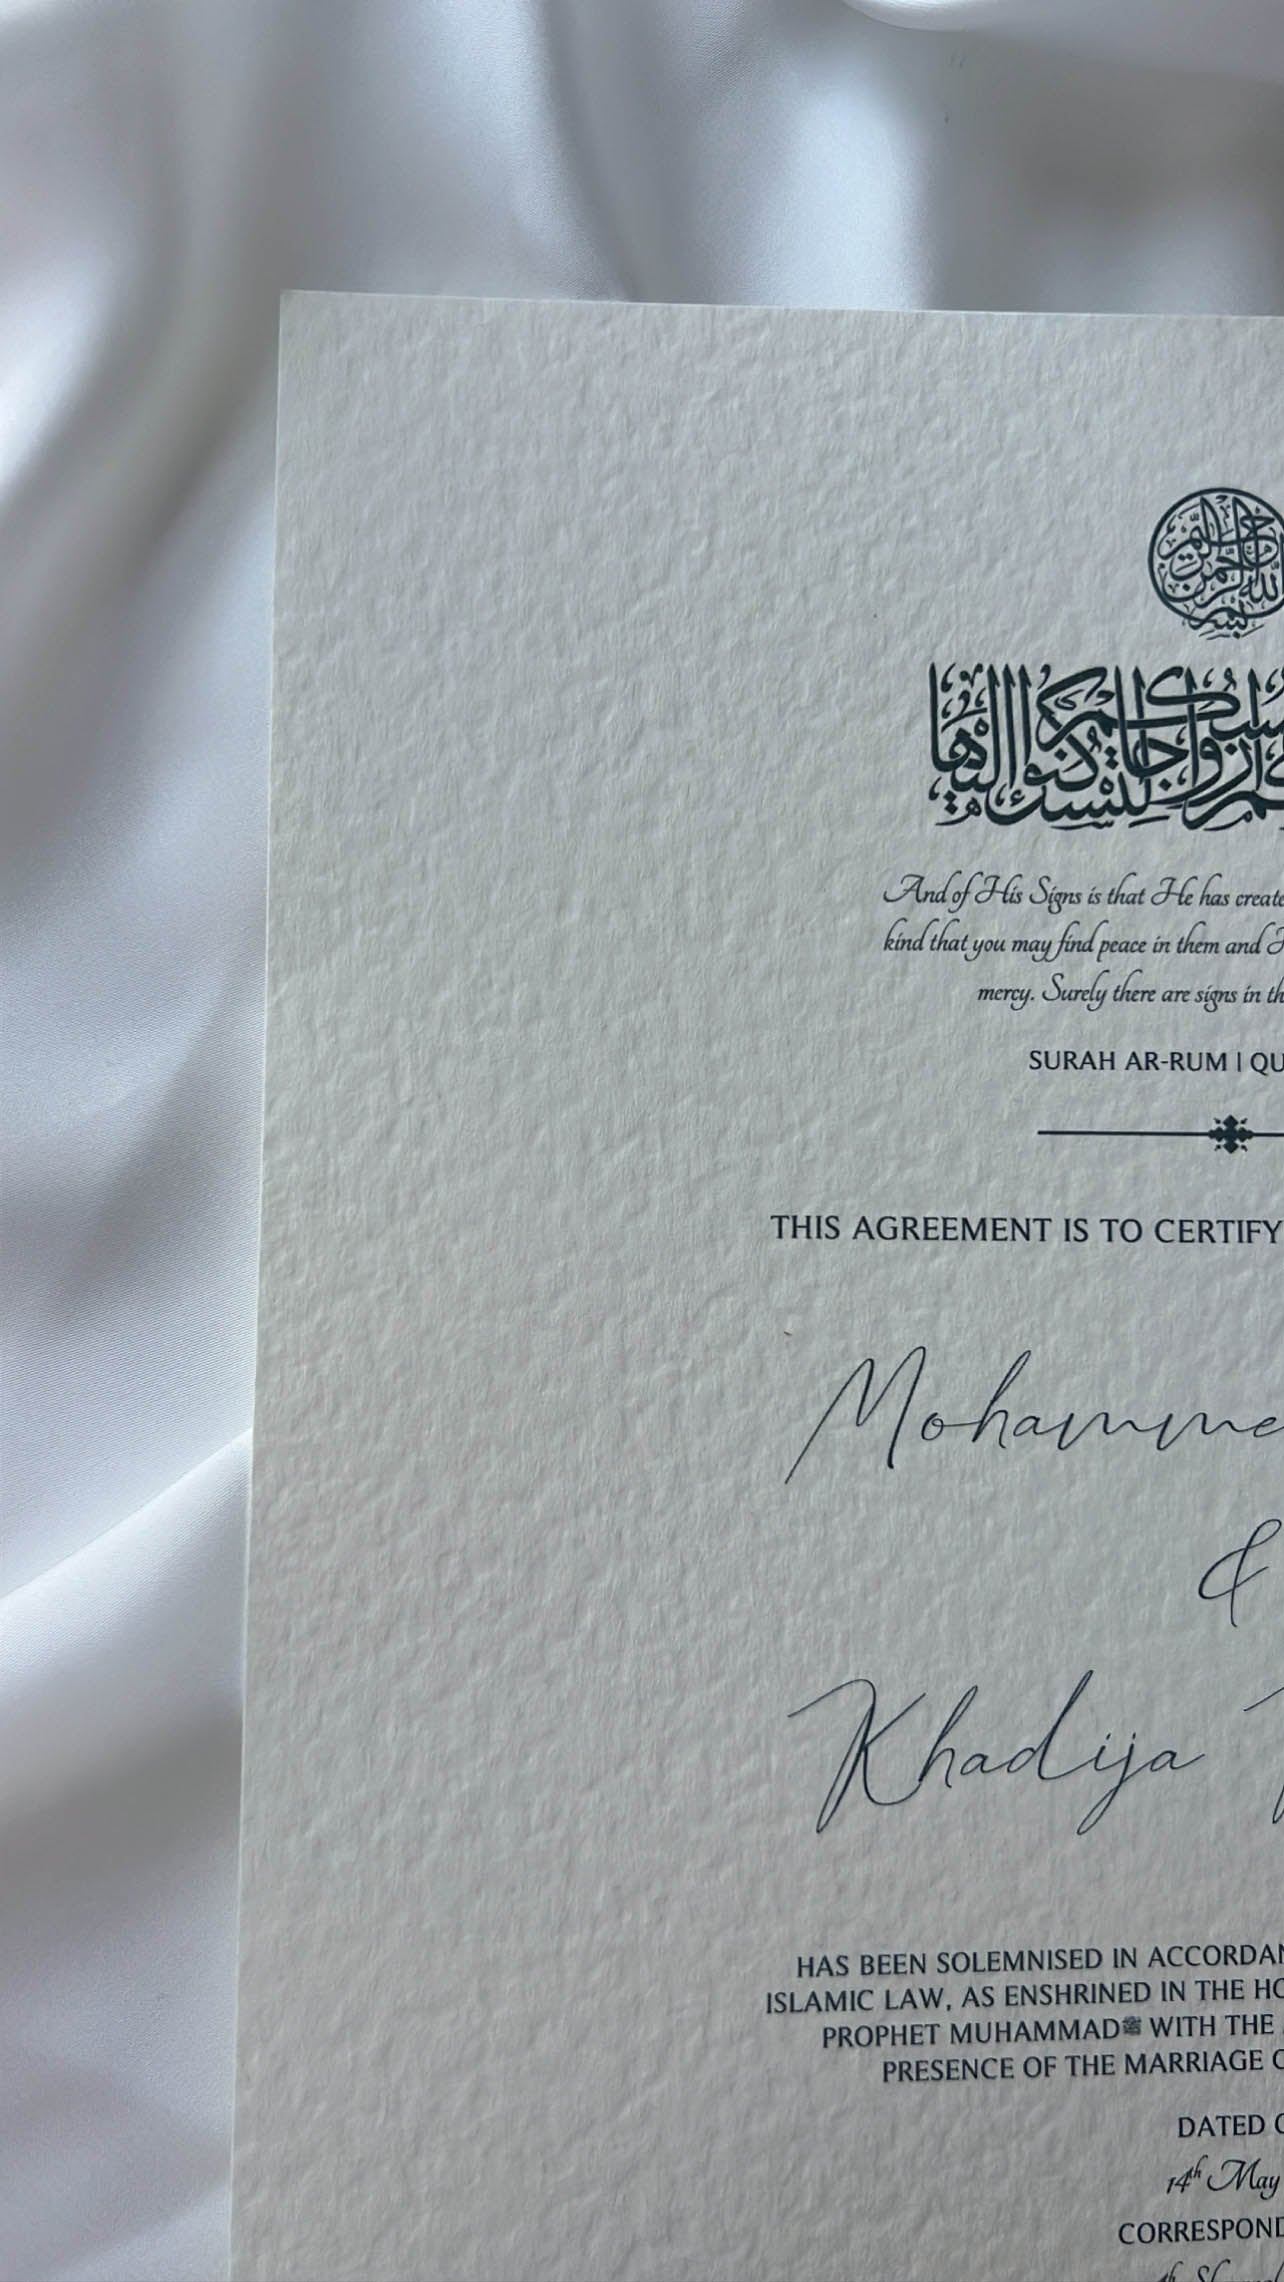 بسم الله الرحمن الرحيم
أزواجا لتسكنوا إليها
And of His Signs is that He has create
kind that you may find peace in them and H
mercy. Surely there are signs in th
SURAH AR-RUM | QU
THIS AGREEMENT IS TO CERTIFY
Mohamme
&
Khadija
HAS BEEN SOLEMNISED IN ACCORDAN
ISLAMIC LAW, AS ENSHRINED IN THE HO
PROPHET MUHAMMADﷺ WITH THE
PRESENCE OF THE MARRIAGE
DATED O
14th May
CORRESPOND